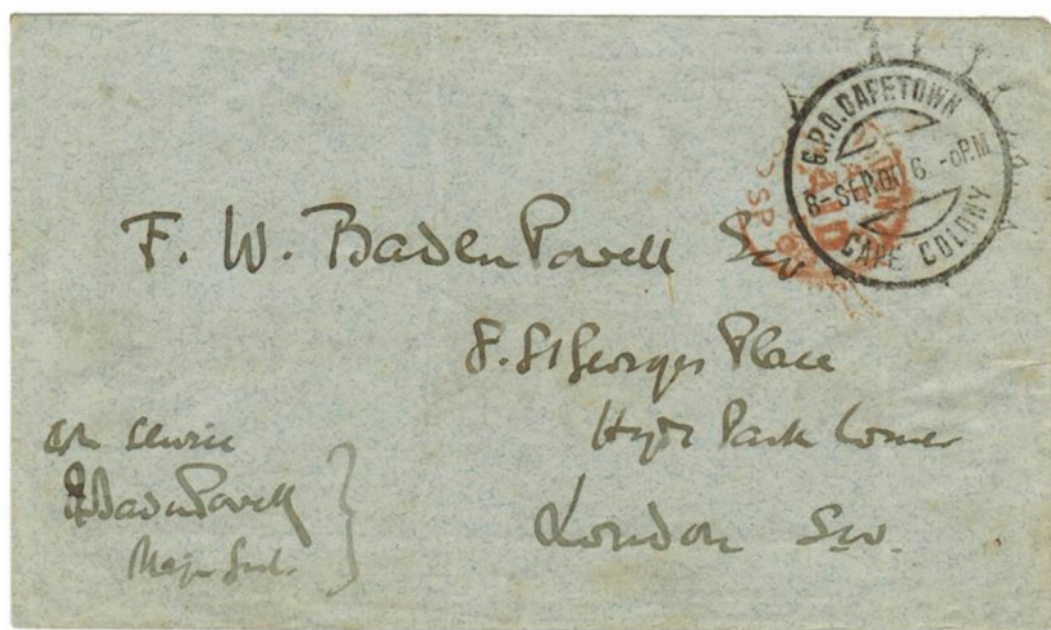 G.P.O. CAPETOWN
8-SEP.00 6-0P.M
CAPE COLONY
PAID
SP
F. W. Baden Powell
8. St Georges Place
Hyde Park Corner
London S.W.
On Service
BadenPowell
Major Genl.